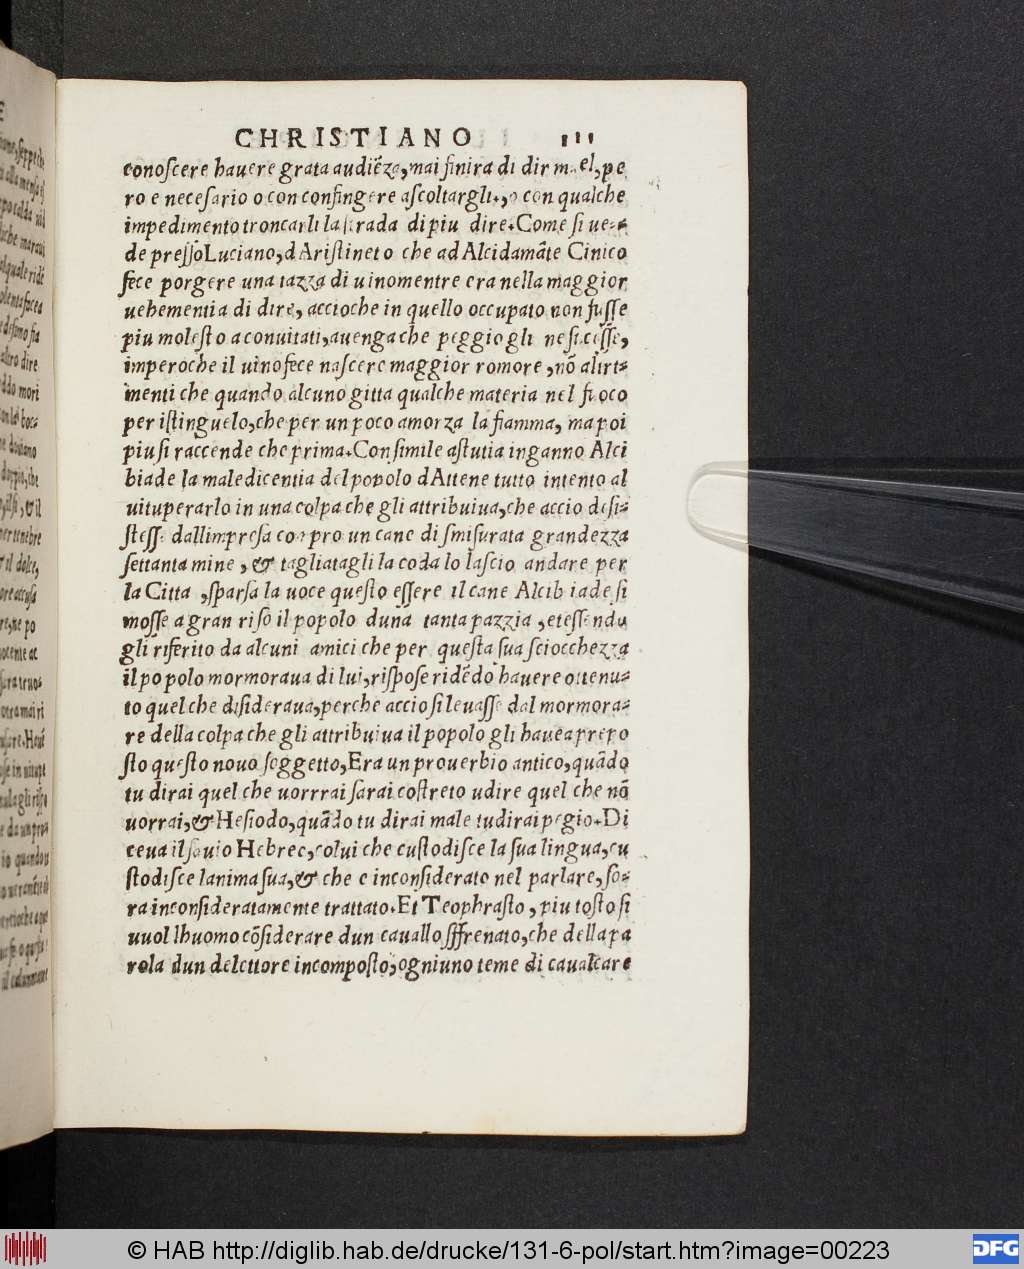 CHRISTIANO 111
conoscere havere grata audiẽza, mai finira di dir mael, pe
ro e necesario o con confingere ascoltargli, o con qualche
impedimento troncarli la strada di piu dire. Come si ve-
de presso Luciano, d Aristineto che ad Alcidamãte Cinico
fece porgere una tazza di uino mentre era nella maggior
uehementia di dire, accioche in quello occupato non fusse
piu molesto a conuitati, auenga che peggio gli ne sucesse,
imperoche il uino fece nascere maggior romore, nõ altri-
menti che quando alcuno gitta qualche materia nel fuoco
per istinguelo, che per un poco amorza la fiamma, ma poi
piu si raccende che prima. Con simile astutia inganno Alci
biade la maledicentia del popolo d Attene tutto intento al
uituperarlo in una colpa che gli attribuiua, che accio desi-
stesse dallimpresa compro un cane di smisurata grandezza
settanta mine, & tagliatagli la coda lo lascio andare per
la Citta, sparsa la uoce questo essere il cane Alcibiade si
mosse a gran riso il popolo duna tanta pazzia, et essendu
gli riferito da alcuni amici che per questa sua sciocchezza
il popolo mormoraua di lui, rispose ridẽdo havere ottenu-
to quel che disideraua, perche accio si leuasse dal mormora-
re della colpa che gli attribuiua il popolo gli hauea prepo
sto questo nouo soggetto, Era un prouerbio antico, quãdo
tu dirai quel che uorrrai sarai costreto udire quel che nõ
uorrai, & Hesiodo, quãdo tu dirai male tu dirai pegio. Di
ceua il sauio Hebreo, colui che custodisce la sua lingua, cu
stodisce lanima sua, & che e inconsiderato nel parlare, so-
ra inconsideratamente trattato. Et Teophrasto, piu tosto si
uuol lhuomo cõsiderare dun cauallo sffrenato, che della pa
rola dun delettore incomposto, ogniuno teme di caualcare
© HAB http://diglib.hab.de/drucke/131-6-pol/start.htm?image=00223
DFG